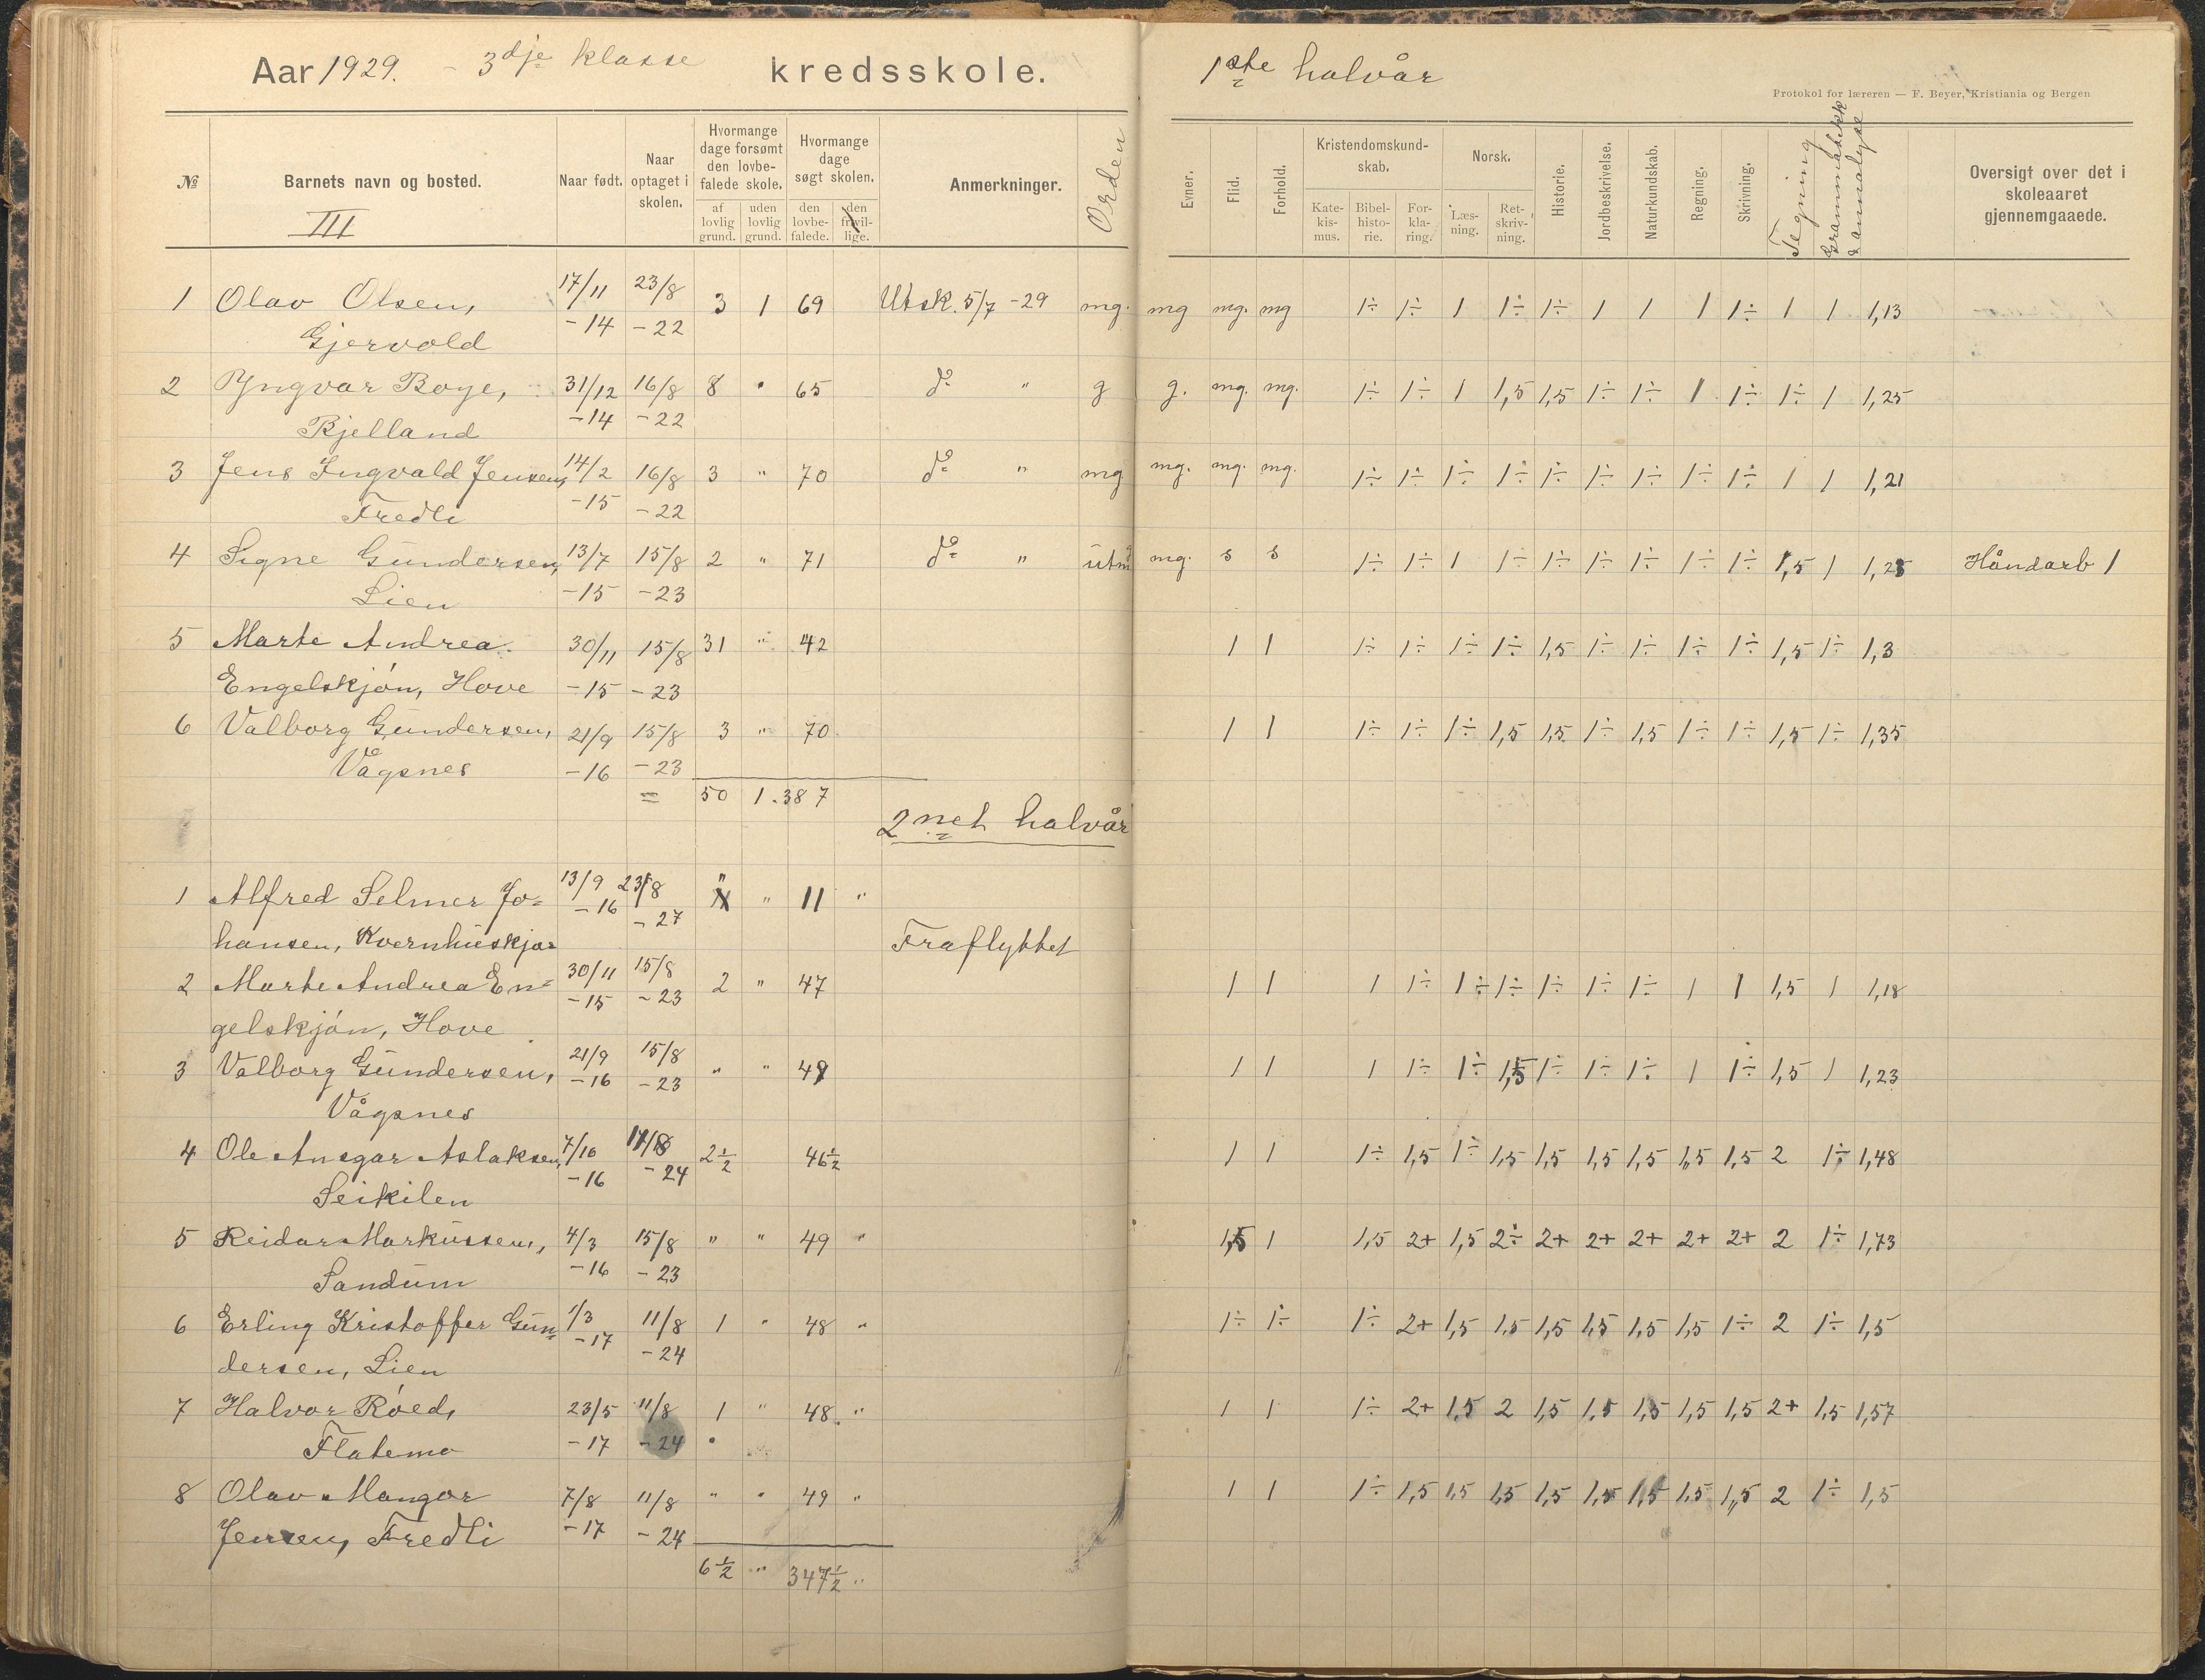 Aar 1929. - 3dje klasse kredsskole. 1ste halvår
Protokol for læreren — F. Beyer, Kristiania og Bergen
№ Barnets navn og bosted. Naar født. Naar optaget i skolen. Hvormange dage forsømt den lovbefalede skole. Hvormange dage søgt skolen. Anmerkninger. Orden Evner. Flid. Forhold. Kristendomskundskab. Norsk. Historie. Jordbeskrivelse. Naturkundskab. Regning. Skrivning. Tegning Grammatikk & annalyse Oversigt over det i skoleaaret gjennemgaaede.
III af lovlig grund. uden lovlig grund. den lovbefalede. den frivillige. Katekismus. Bibelhistorie. Forklaring. Læsning. Retskrivning.
1 Olav Olsen, 17/11 23/8 3 1 69 Utsk. 5/7 -29 mg. mg mg. mg 1÷ 1÷ 1 1÷ 1÷ 1 1 1 1÷ 1 1 1,13
Gjervold -14 -22
2 Yngvar Boye, 31/12 16/8 8 " 65 do " g g. mg. mg. 1÷ 1÷ 1 1,5 1,5 1÷ 1÷ 1 1÷ 1÷ 1 1,25
Kjelland -14 -22
3 Jens Ingvald Jensen, 14/2 16/8 3 " 70 do " mg mg. mg. mg. 1÷ 1÷ 1÷ 1÷ 1÷ 1÷ 1÷ 1÷ 1÷ 1 1 1,21
Fredli -15 -22
4 Signe Gundersen, 13/7 15/8 2 " 71 do " utm mg. s s 1÷ 1÷ 1 1÷ 1÷ 1÷ 1÷ 1÷ 1÷ 1,5 1 1,25 Håndarb 1
Lien -15 -23
5 Marte Andrea 30/11 15/8 31 " 42 1 1 1÷ 1÷ 1÷ 1÷ 1,5 1÷ 1÷ 1÷ 1÷ 1,5 1÷ 1,3
Engelskjøn, Hove -15 -23
6 Valborg Gundersen, 21/9 15/8 3 " 70 1 1 1÷ 1÷ 1÷ 1,5 1,5 1÷ 1,5 1÷ 1÷ 1,5 1÷ 1,35
Vågsnes -16 -23
= 50 1 387
2net halvår
1 Alfred Selmer Jo= 13/9 23/8 " " 11 "
-16 -27
hansen, Kvernhuskjær Fraflyttet
2 Marte Andrea En= 30/11 15/8 2 " 47 1 1 1 1÷ 1÷ 1÷ 1÷ 1÷ 1÷ 1 1 1,5 1 1,18
-15 -23
gelskjøn, Hove
3 Valborg Gundersen, 21/9 15/8 " " 49 1 1 1 1÷ 1÷ 1,5 1÷ 1÷ 1÷ 1 1÷ 1,5 1 1,23
-16 -23
Vågsnes
4 Ole Ansgar Aslaksen, 7/10 11/8 2½ 46½ 1 1 1÷ 1,5 1÷ 1,5 1,5 1,5 1,5 1,5 1,5 2 1÷ 1,48
Seikilen -16 -24
5 Reidar Markussen, 4/3 15/8 " " 49 " 1,5 1 1,5 2+ 1,5 2÷ 2+ 2+ 2+ 2+ 2+ 2 1÷ 1,73
Sandum -16 -23
6 Erling Kristoffer Gun= 1/3 11/8 1 " 48 " 1÷ 1÷ 1÷ 2+ 1,5 1,5 1,5 1,5 1,5 1,5 1÷ 2 1÷ 1,5
dersen, Lien -17 -24
7 Halvor Røed, 23/5 11/8 1 " 48 " 1 1 1÷ 2+ 1,5 2 1,5 1,5 1,5 1,5 1,5 2+ 1,5 1,57
Flatemo -17 -24
8 Olav Mangor 7/8 11/8 " " 49 " 1 1 1÷ 1,5 1,5 1,5 1,5 1,5 1,5 1,5 1,5 2 1÷ 1,5
Jensen, Fredli -17 -24
6½ " 347½ "